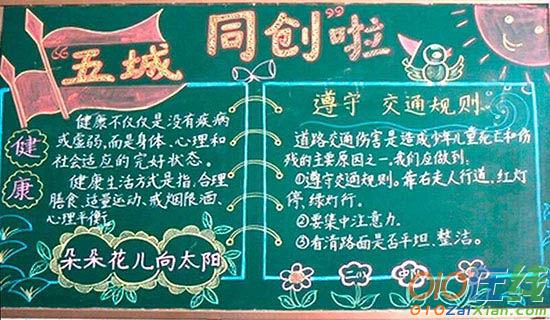 “五城同创”啦
健康
健康不仅仅是没有疾病
或虚弱,而是身体、心理和
社会适应的完好状态。
健康生活方式是指,合理
膳食、适量运动、戒烟限酒、
心理平衡
朵朵花儿向太阳
遵守 交通规则。
道路交通伤害是造成少年儿童死亡和伤
残的主要原因之一,我们应做到:
①遵守交通规则。靠右走人行道,红灯
停,绿灯行。
②要集中注意力.
③看清路面是否平坦、整洁。
010在线
010zaixian.com